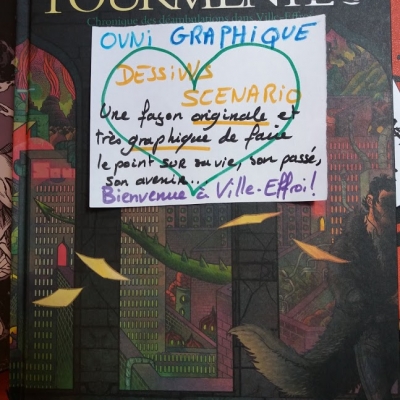 TOURMENTE
Chronique des déambulations dans Ville-Effroi
OVNI GRAPHIQUE
DESSINS
SCENARIO
Une façon originale et
très graphique de faire
le point sur sa vie, son passé,
son avenir...
Bienvenue à Ville-Effroi!